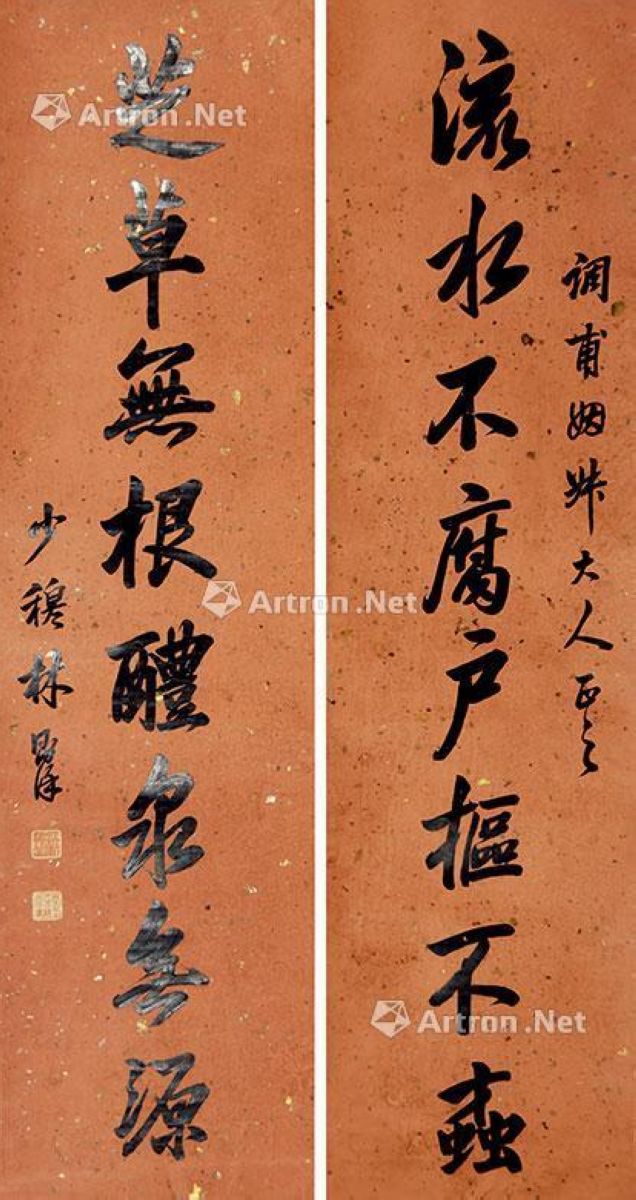 调甫姻丈大人正之
流水不腐户樞不蠹
芝草無根醴泉無源
少穆林則徐
Artron.Net
Artron.Net
Artron.Net